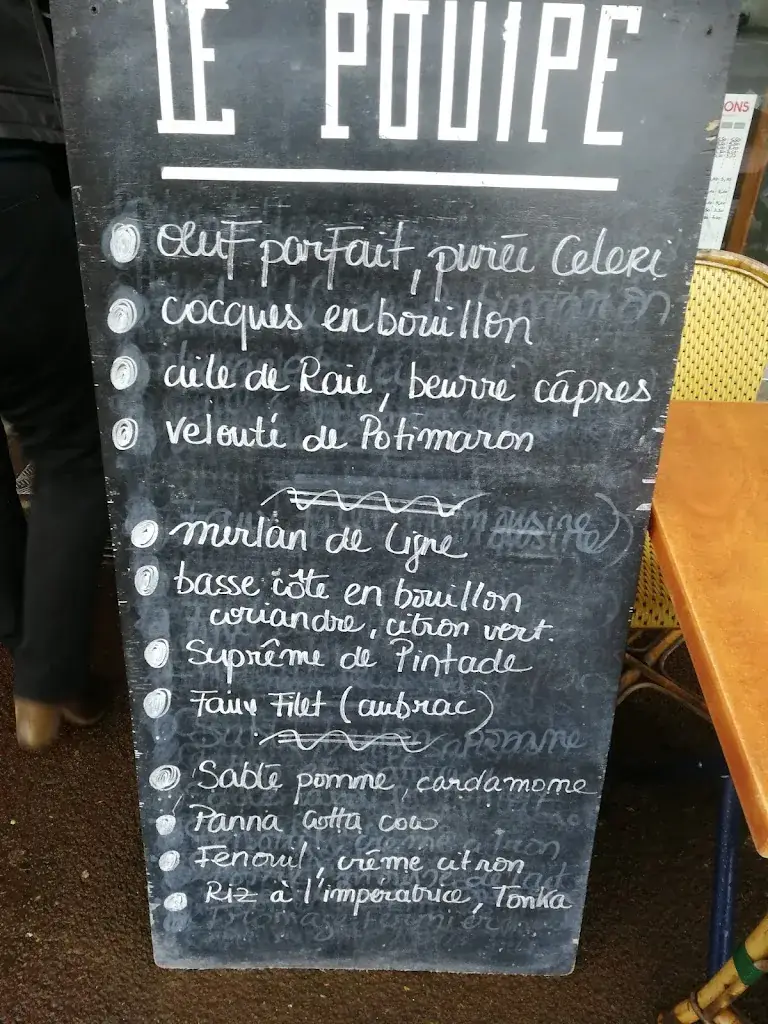 LE POULPE
œuf parfait, purée Celeri
cocques en bouillon
aile de Raie, beurre câpres
velouté de Potimaron
merlan de ligne
basse côte en bouillon
coriandre, citron vert.
Suprême de Pintade
Faux Filet (aubrac)
Sablé pomme, cardamome
Panna cotta coco
Fenouil, crême citron
Riz à l'impératrice, Tonka
ONS